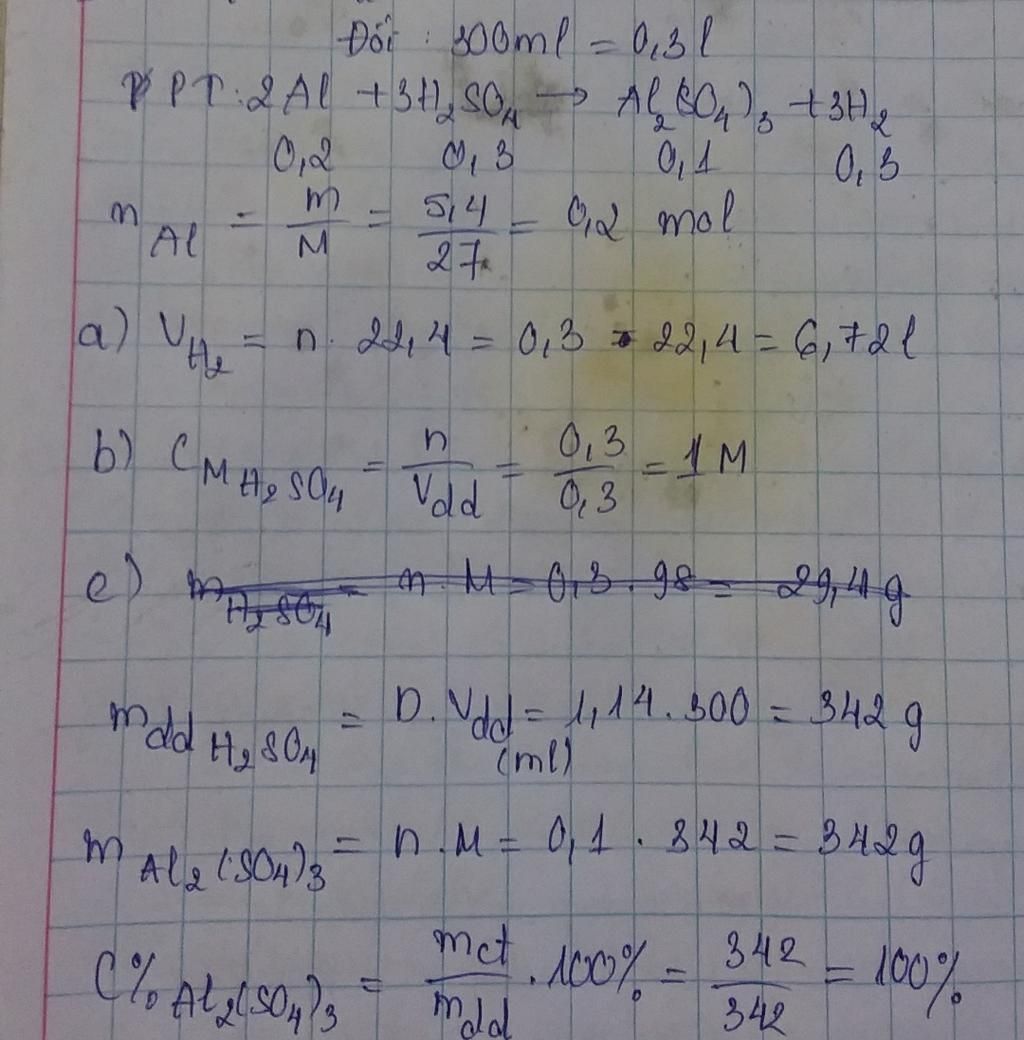 Đổi : 300ml = 0,3l
PT: 2Al + 3H₂SO₄ → Al₂(SO₄)₃ + 3H₂
0,2 0,3 0,1 0,3
n Al = m/M = 5,4/27 = 0,2 mol
a) V H₂ = n. 22,4 = 0,3 . 22,4 = 6,72l
b) C M H₂SO₄ = n/Vdd = 0,3/0,3 = 1M
c) m H₂SO₄ = n. M = 0,3 . 98 = 29,4 g
m dd H₂SO₄ = D. Vdd (ml) = 1,14 . 300 = 342 g
m Al₂(SO₄)₃ = n. M = 0,1 . 342 = 342g
C% Al₂(SO₄)₃ = mct/mdd . 100% = 342/342 = 100%